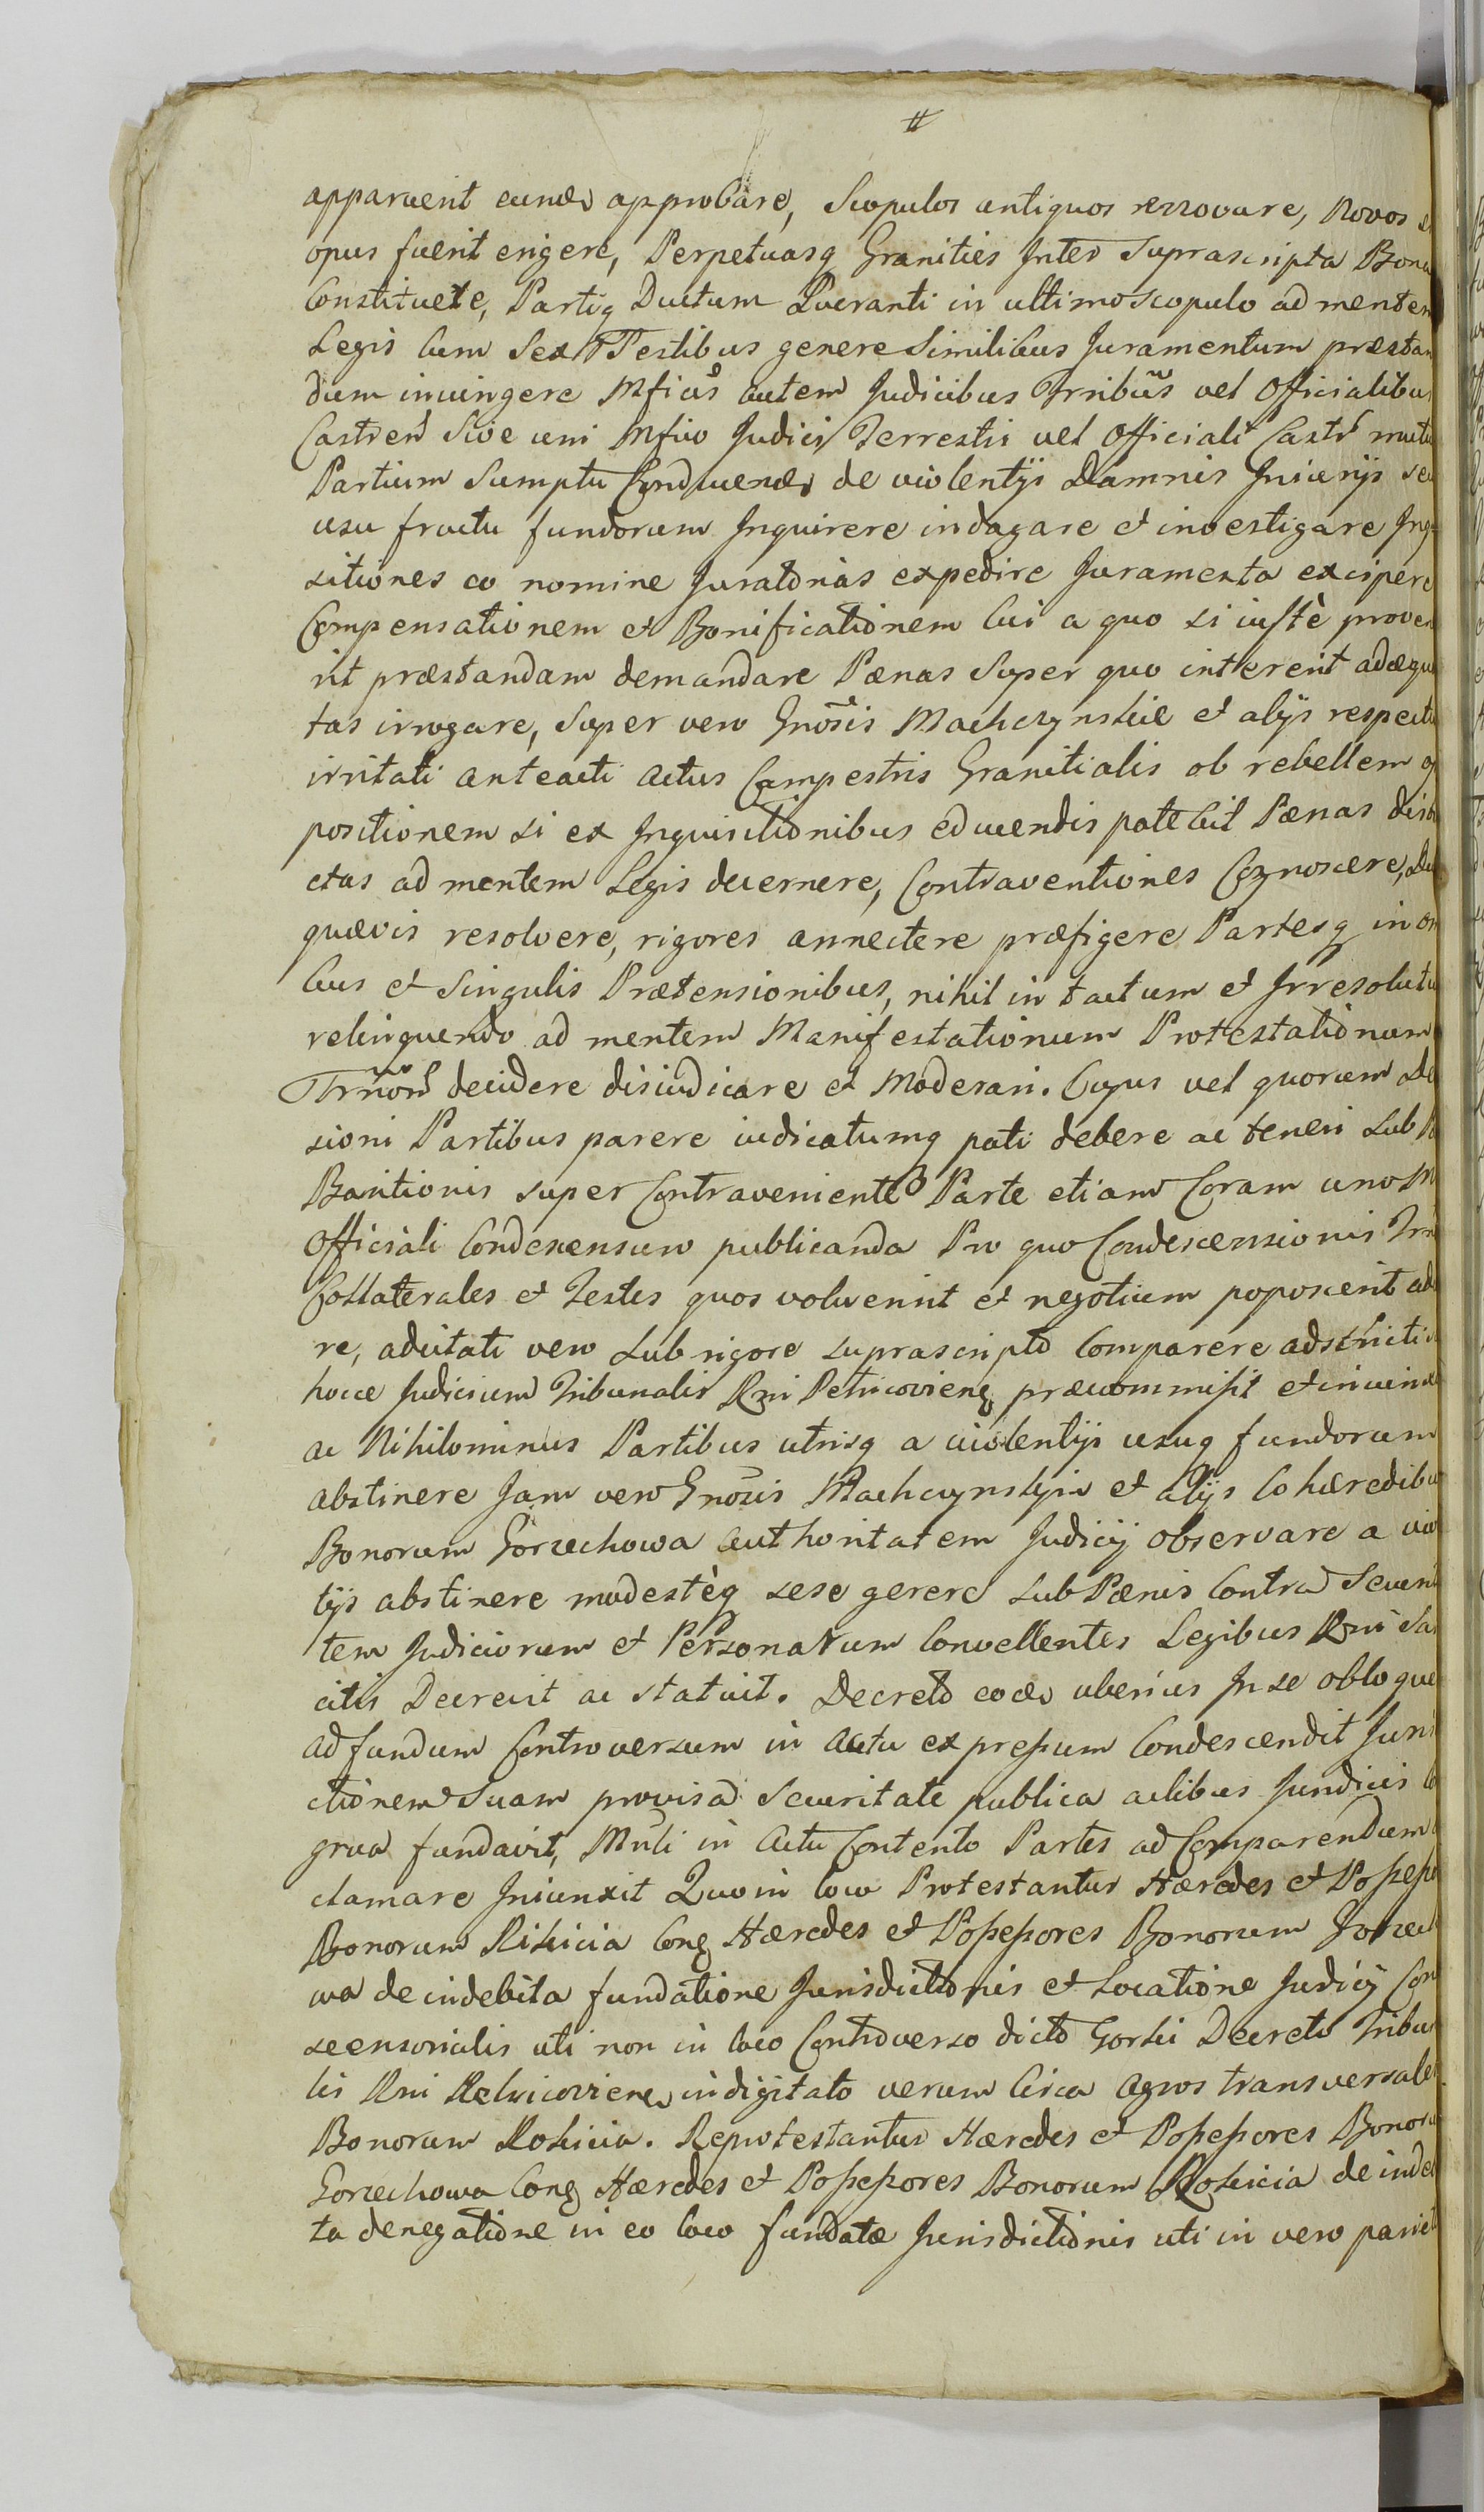 #
apparuerit eund approbare, Scopulos antiquos renovare, Novos
opus fuerit erigere, Perpetuasq Granities Inter Suprascripta Bona
Constituere, Partiq Ductum Lucranti in ultimo scopulo ad mentem
Legis Cum Sex Testibus genere Similibus Juramentum præstan
dum iniungere Mficis autem Judicibus Trribus vel Officialibus
Castren Sive uni Mfico Judici Terrestri vel Officiali Castr mutuo
Partium Sumptu Conducend de violentijs Damnis Iniurijs seu
usu fructu fundorum Inquirere indagare et investigare Inqui
sitiones eo nomine Juratorias expedire Juramenta excipere
Compensationem et Bonificationem Cui a quo si iustè prove
rit præstandam demandare Pænas Super quo intererit adæqua
tas irrogare, Super vero Gnosis Machczynskie et alijs respectu
irritati anteacti actus Campestris Granitialis ob rebellem op
positionem si ex Inquisitionibus educendis patebit Pænas distri
ctas ad mentem Legis decernere, Contraventiones Cognoscere,
quævis resolvere, rigores annectere præfigere Partesq in om
bus et Singulis Prætensionibus, nihil intactum et Irresolutum
relinquendo ad mentem Manifestationum Protestationum
Trmor decidere disiudicare et Moderari. Cujus vel quorum De
sioni Partibus parere iudicatumq pati debere ac teneri Sub
Banitionis super Contraveniente Parte etiam Coram uno
Officiali Condescensuro publicanda Pro quo Condescensionis
Collaterales et Testes quos voluerint et negotium poposcerit
re, adcitati vero Sub rigore suprascripto Comparere adstricti
hocce Judicium Tribunalis Rni Petricovien præcommisit et
ac Nihilominus Partibus utrisq a violentijs usuq fundorum
abstinere Jam vero Gnosis Machczynskim et alijs Cohæredibus
Bonorum Gorzechowa Authoritatem Judicij observare a vio
tijs abstinere modestèq sese gerere sub Pænis Contra Securi
tem Judiciorum et Personarum Convellentes Legibus Rni
citis Decrevit ac statuit. Decreto eod uberius In se
ad fundum Controversum in Actu expressum Condescendit Juris
ctionem Suam provisa Securitate publica actibus Juridicis
grua fundavit, Mnli in Actu Contento Partes ad Comparendum
clamare Iniunxit Quo in loco Protestantur Hæredes et Possesso
Bonorum Rokicia Cong Hæredes et Possessores Bonorum Gorzecho
wa de indebita fundatione Jurisdictionis et Locatione Judicij Con
scensorialis uti non in loco Controverso dicto Gorki Decreto Tribu
lis Rni Petricovien indigitato verum Circa Agros transversales
Bonorum Rokicia. Reprotestantur Hæredes et Possessores Bonoru
Gorzechowa Cong Hæredes et Possessores Bonorum Rokicia de indebi
ta denegatione in eo loco fundatæ Jurisdictionis uti in vero